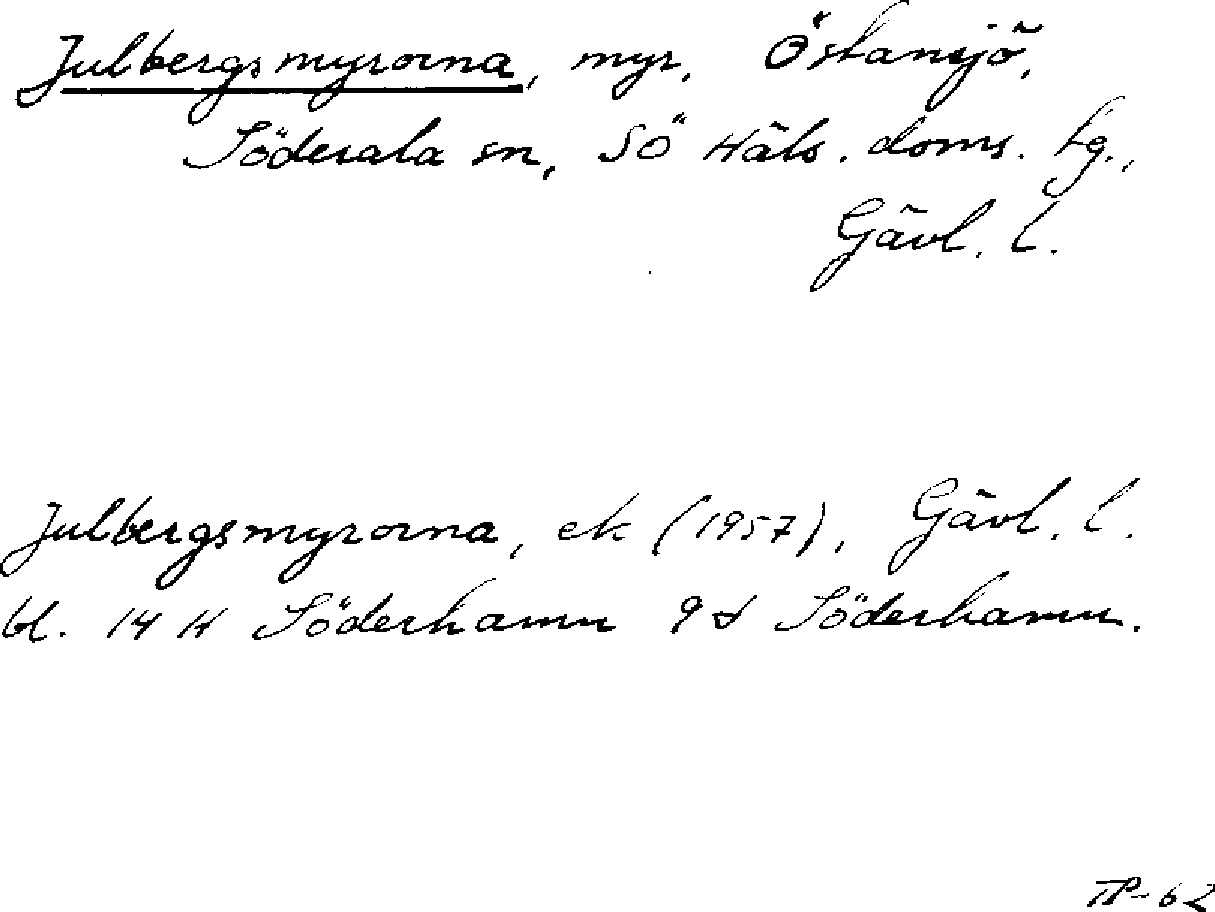 Julbergsmyrorna, myr, Östansjö,
Söderala sn, SÖ Häls. doms. tg.,
Gävl. l.
Julbergsmyrorna, ek (1957), Gävl. l.
bl. 14 H Söderhamn 9 d Söderhamn.
TP-62